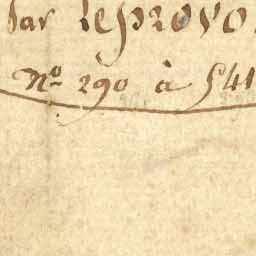 par leprovo
No 290 à 541